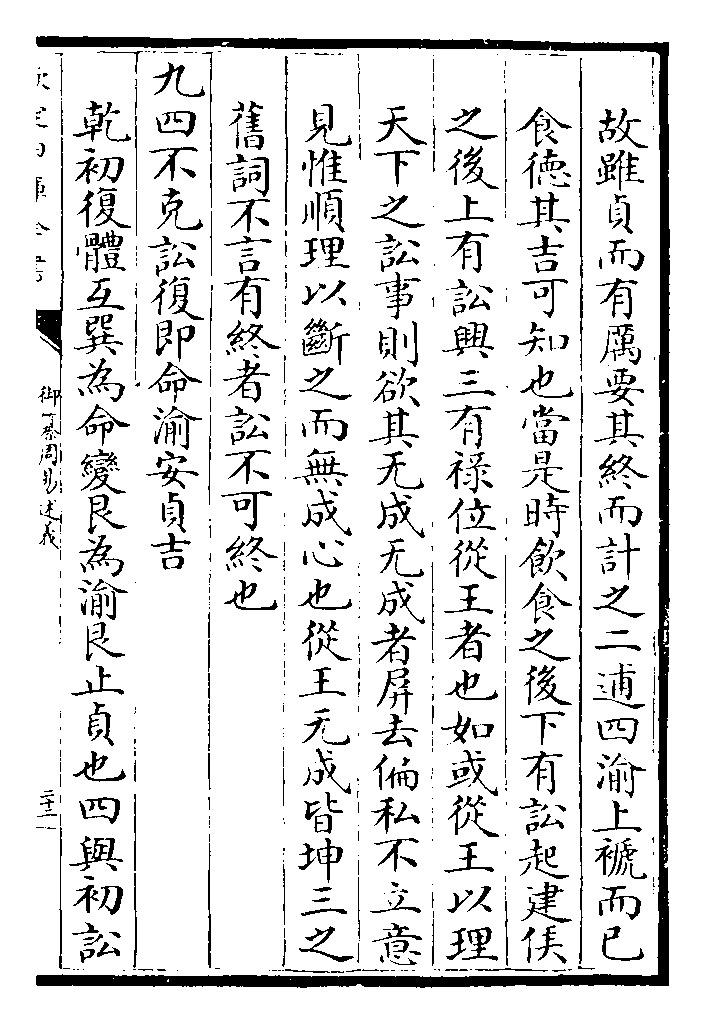 故雖貞而有厲要其終而計之二逋四渝上褫而已
食德其吉可知也當是時飲食之後下有訟起建侯
之後上有訟興三有祿位從王者也如或從王以理
天下之訟事則欲其无成无成者屏去偏私不立意
見惟順理以斷之而無成心也從王无成皆坤三之
舊詞不言有終者訟不可終也
九四不克訟復即命渝安貞吉
乾初復體互巽為命變艮為渝艮止貞也四與初訟
欽定四庫全書
御纂周易述義
二十二